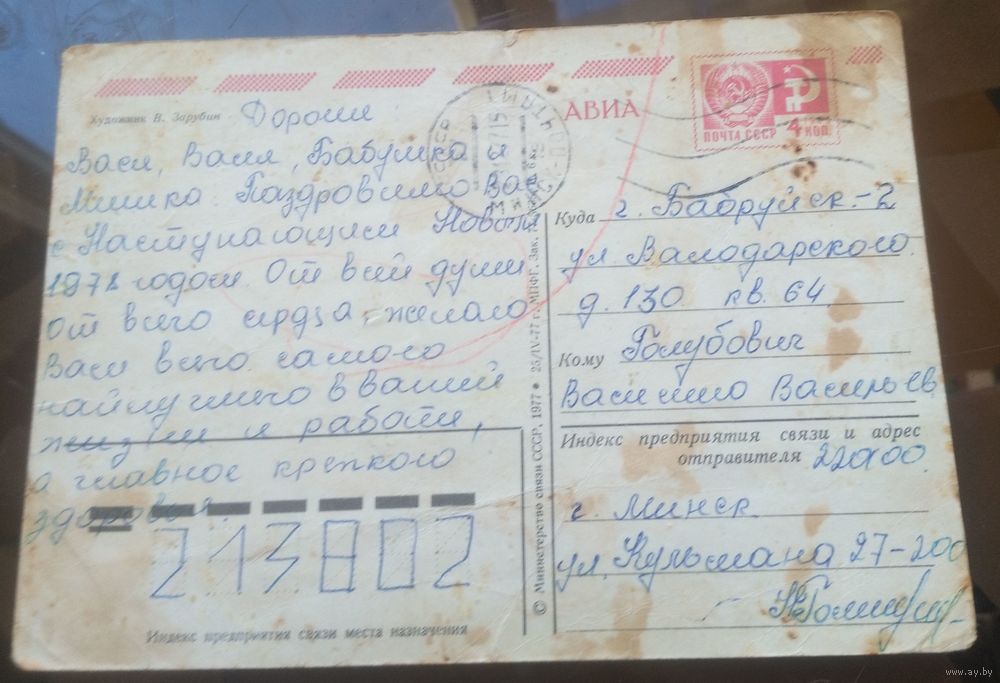 Художник В. Зарубин
Дорогие
Вася, Валя, Бабушка и
Мишка. Паздровляю Вас
с Наступающим Новым
1978 годом. От всей души
от всего сердца желаю
Вам всего самого
найлучшего в вашей
жизни и работи,
а главное крепкого
здоровья.
213802
Индекс предприятия связи места назначения
© Министерство связи СССР, 1977 • 25/IV-77 г. МПФГ. Зак. 6 к.
АВИА
ПОЧТА СССР 4 КОП.
СССР
МИНСК
ПОЧТАМТ
Куда г. Бабруйск-2
ул Валодарского
д. 130 кв. 64
Кому Голубович
Василию Васильев
Индекс предприятия связи и адрес
отправителя 220100
г. Минск
ул. Кульмана 27-200
www.ay.by